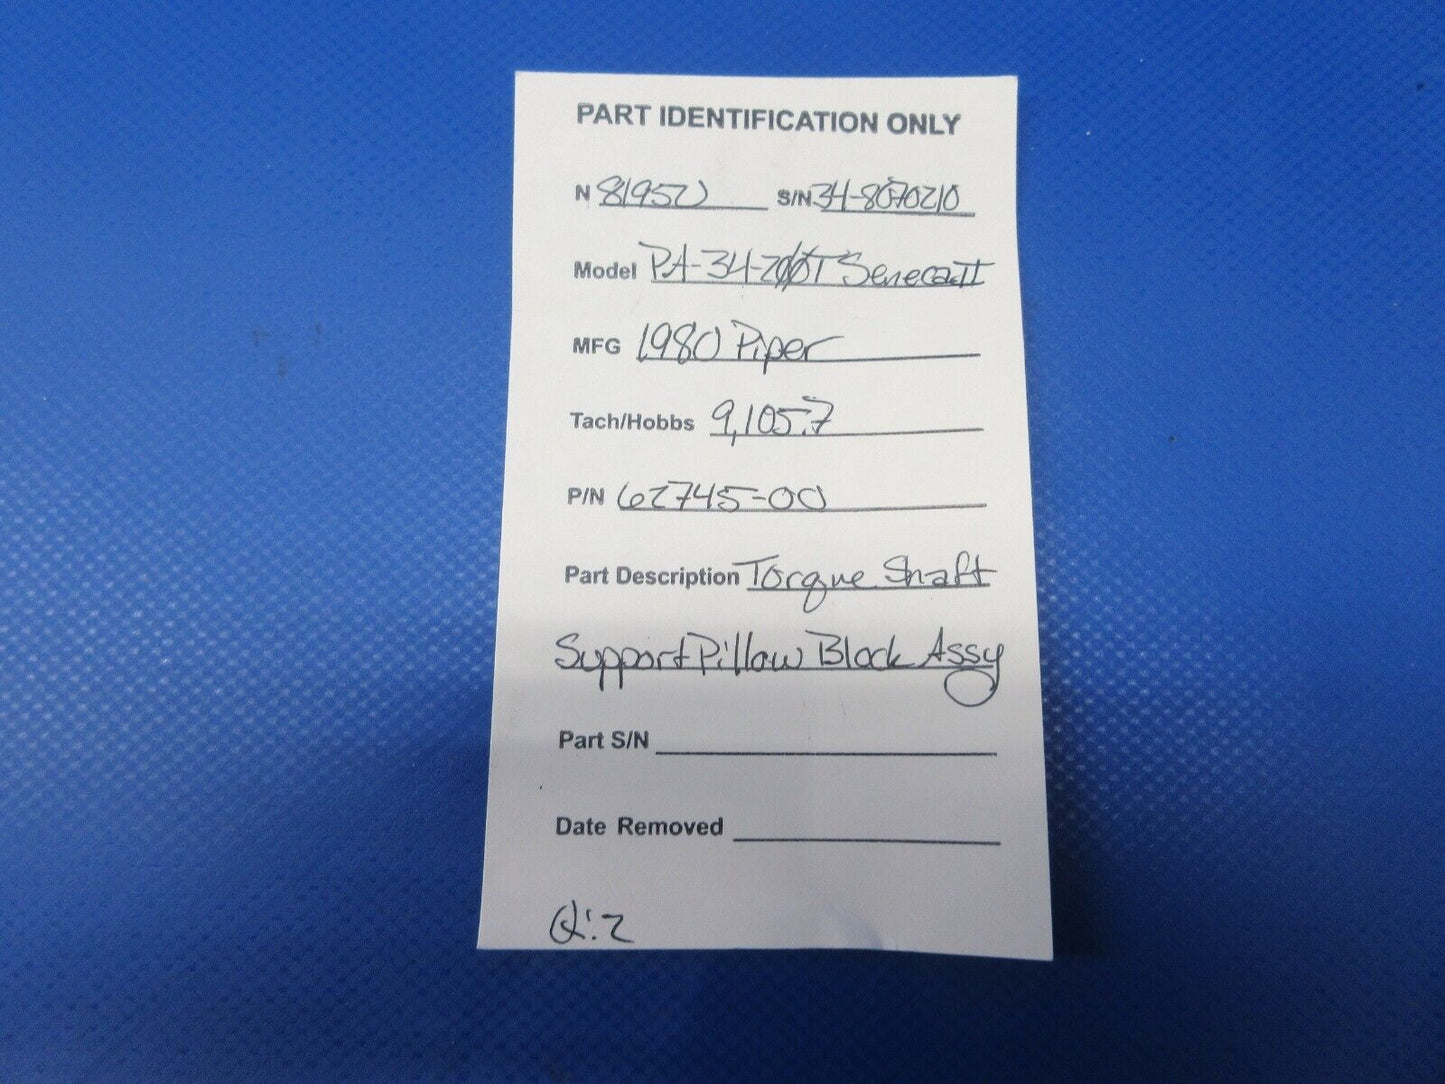 PART IDENTIFICATION ONLY
N 8195U S/N 34-8070210
Model PA-34-200T Seneca II
MFG 1980 Piper
Tach/Hobbs 9,105.7
P/N 62745-00
Part Description Torque Shaft
Support Pillow Block Assy
Part S/N
Date Removed
Q:2